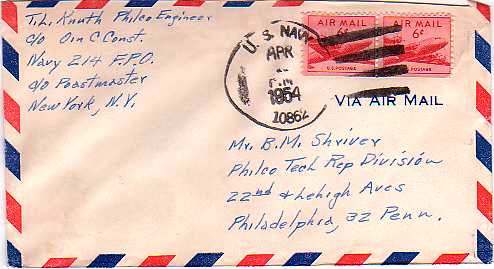 T.L. Knuth Philco Engineer
c/o Oin C Const.
Navy 214 F.P.O.
c/o Poastmaster
New York, N.Y.
U. S. NAVY
APR
P.M
1954
10862
AIR MAIL
6¢
U.S. POSTAGE
AIR MAIL
6¢
U.S. POSTAGE
VIA AIR MAIL
Mr. B.M. Shriver
Philco Tech Rep Division
22nd & Lehigh Aves
Philadelphia, 32 Penn.